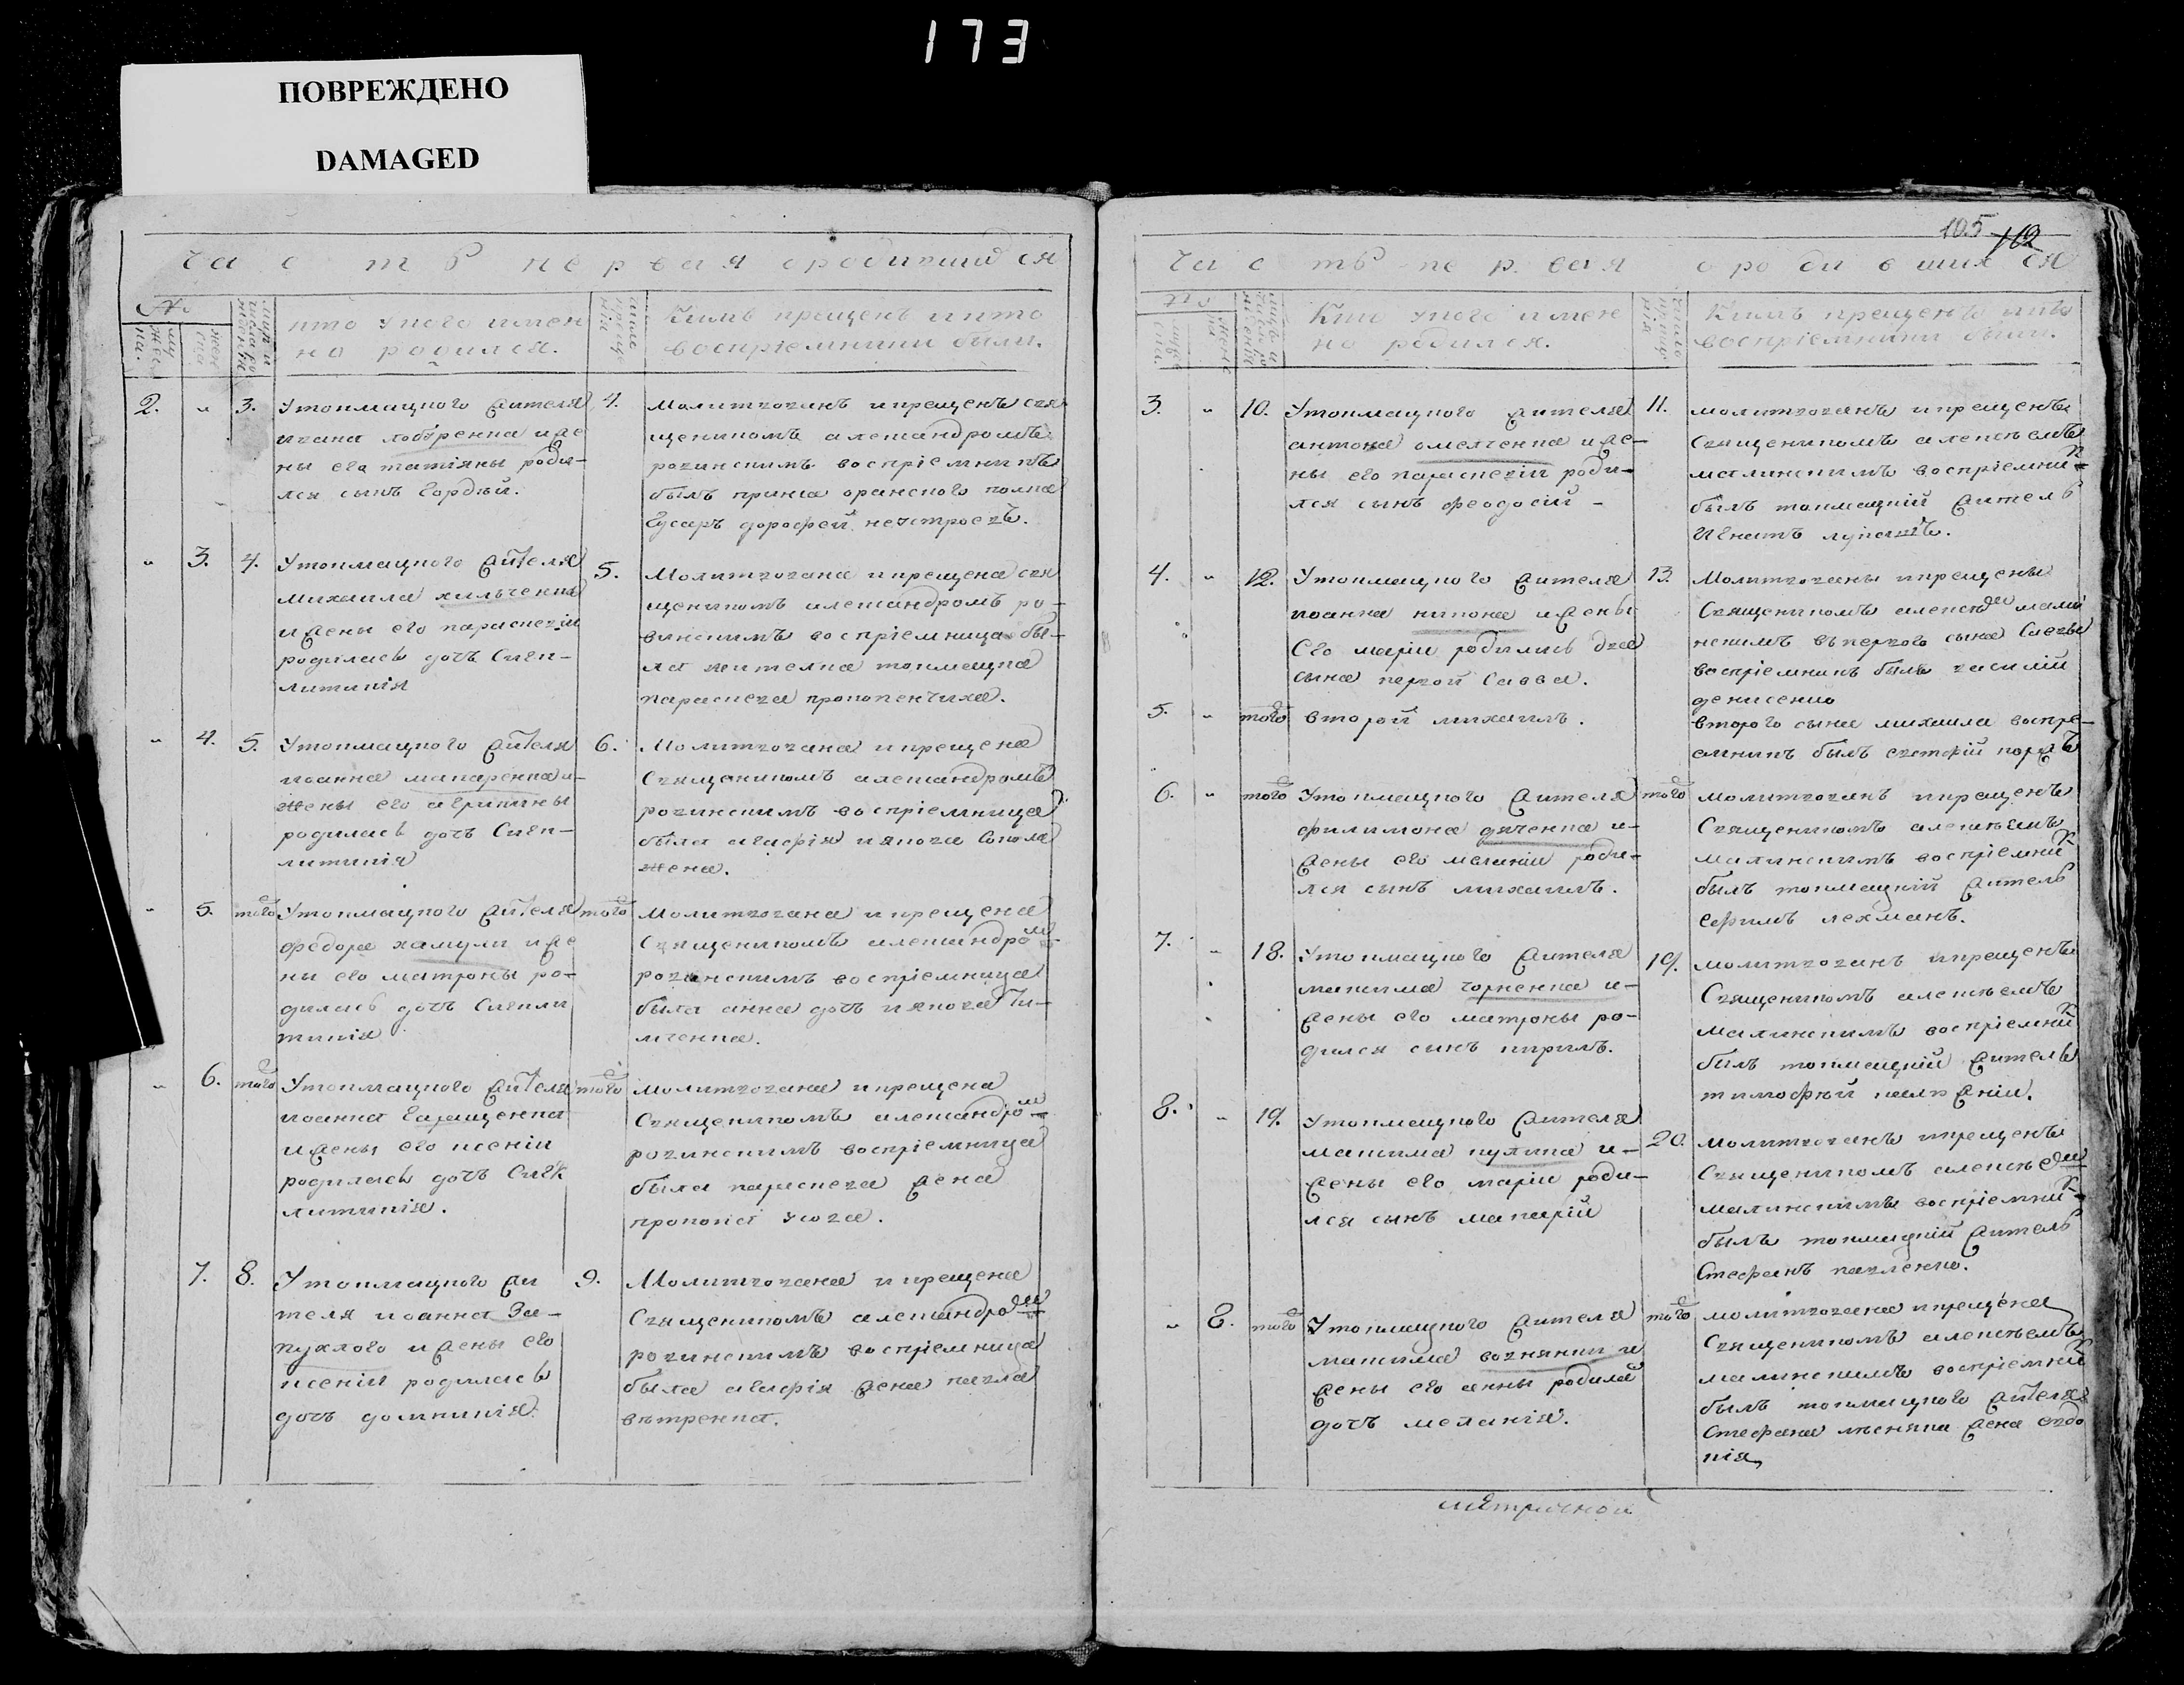 173
ПОВРЕЖДЕНО
DAMAGED
Часть первая ородившихся
№
муже
ска.
жен
ска
Кто укого имен
но родился.
Кѣмъ крещенъ икто
воспріемники были.
2. " 3. Утокмацкого жителя 4.
ивана лобуренка иже
ны его татіяны роди-
лся сынъ гордѣй.
молитвованъ икрещенъ свя
щеникомъ алеѯандромъ
ровинскимъ воспріемникъ
былъ принца оранского полка
гусаръ дорофей нечстроевъ.
" 3. 4. Утокмацкого жителя 5.
михаила хильченка
ижены его параскевіи
родилась дочь Сигк-
литикія
Молитвована икрещена свя
щеникомъ алеѯандромъ ро-
винскимъ воспріемница бы-
ла жителка токмацка
параскева прокопенчиха.
" 4. 5. Утокмацкого жителя 6.
иоанна макаренка и-
жены его агрипины
родилась дочь Сигк-
литикія
Молитвована икрещена
Священикомъ алеѯандромъ
ровинскимъ воспріемница
была агафія иякова сокола
жена.
" 5. того Утокмацкого жителя того
федора хамули иже
ны его матроны ро-
дилась дочь Сигкли
тикія
Молитвована икрещена
Священикомъ алеѯандром
ровинскимъ воспріемница
была анна дочь иякова Ти-
мченка.
" 6. того Утокмацкого жителя того
иоанна Гаращенка
ижены его ксеніи
родилась дочь Сигк
литикія.
молитвована икрещена
Священикомъ алеѯандром
ровинскимъ воспріемница
была параскева жена
прокопа уса.
7. 8. Утокмацкого жи 9.
теля иоанна За-
пухлого ижены его
ксеніи родилась
дочь домникія.
Молитвована икрещена
Священикомъ алеѯандром
ровинскимъ воспріемница
была агафія жена павла
вѣтренка.
105 112
Часть первая ородившихся
№
Кто укого имен
но родился.
Кѣмъ крещенъ икто
воспріемники были.
3. " 10. Утокмацкого жителя 11.
антона омелченка иже-
ны его параскевіи роди-
лся сынъ феодосій -
молитвованъ икрещенъ
Священикомъ алексѣемъ
малинскимъ воспріемник
былъ токмацкій житель
Игнатъ лупачъ.
4. " 12. Утокмацкого жителя 13.
иоанна никона ижены
Его маріи родились два
сына первой Савва.
Молитвованы икрещены
Священикомъ алексѣем мали
нскимъ въпервого сына Саввы
воспріемникъ былъ василій
денисенко
5. " того второй михаилъ.
второго сына михаила воспрі-
емникъ былъ евстафій коржъ
6. " того Утокмацкого жителя того
филимона дяченка и-
жены его меланіи роди-
лся сынъ михаилъ.
молитвованъ икрещенъ
Священикомъ алексѣемъ
малинскимъ воспріемник
былъ токмацкій житель
ефимъ лехманъ.
7. " 18. Утокмацкого жителя 19.
максима горненка и-
жены его матроны ро-
дился сынъ кирилъ.
молитвованъ икрещенъ
Священикомъ алексѣемъ
малинскимъ воспріемник
былъ токмацкій житель
тимофѣй
8. " 19. Утокмацкого жителя 20.
максима кулика и-
жены его маріи роди-
лся сынъ макарій
молитвованъ икрещенъ
Священикомъ алексѣем
малинскимъ воспріемник
былъ токмацкій житель
Стефанъ павленко.
" 8. того Утокмацкого жителя того
максима вознянки и
жены его анны родила
дочь меланія.
молитвована икрещена
Священикомъ алексѣемъ
малинскимъ воспріемник
былъ токмацкого жителя
Стефана лѣсняка жена евдо
кія
метричной